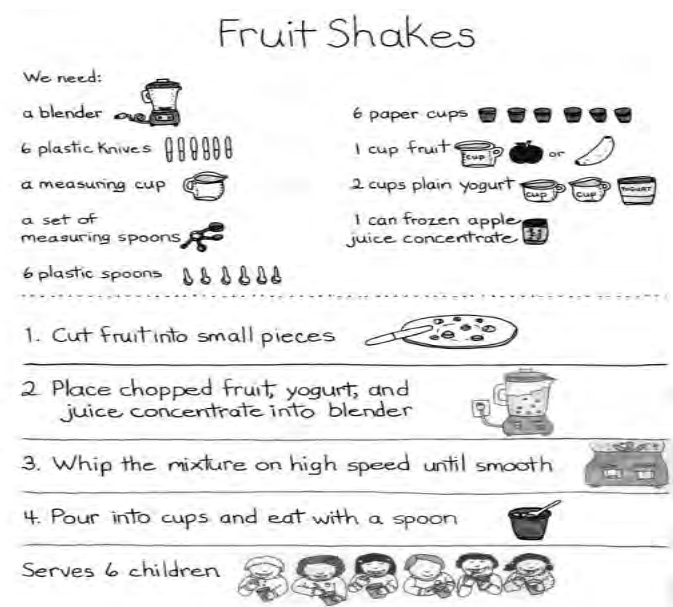 Fruit Shakes
We need:
a blender
6 plastic knives
a measuring cup
a set of
measuring spoons
6 plastic spoons
6 paper cups
1 cup fruit cup or
2 cups plain yogurt cup cup YOGURT
1 can frozen apple
juice concentrate
1. Cut fruit into small pieces
2 Place chopped fruit, yogurt, and
juice concentrate into blender
3. Whip the mixture on high speed until smooth
4. Pour into cups and eat with a spoon
Serves 6 children